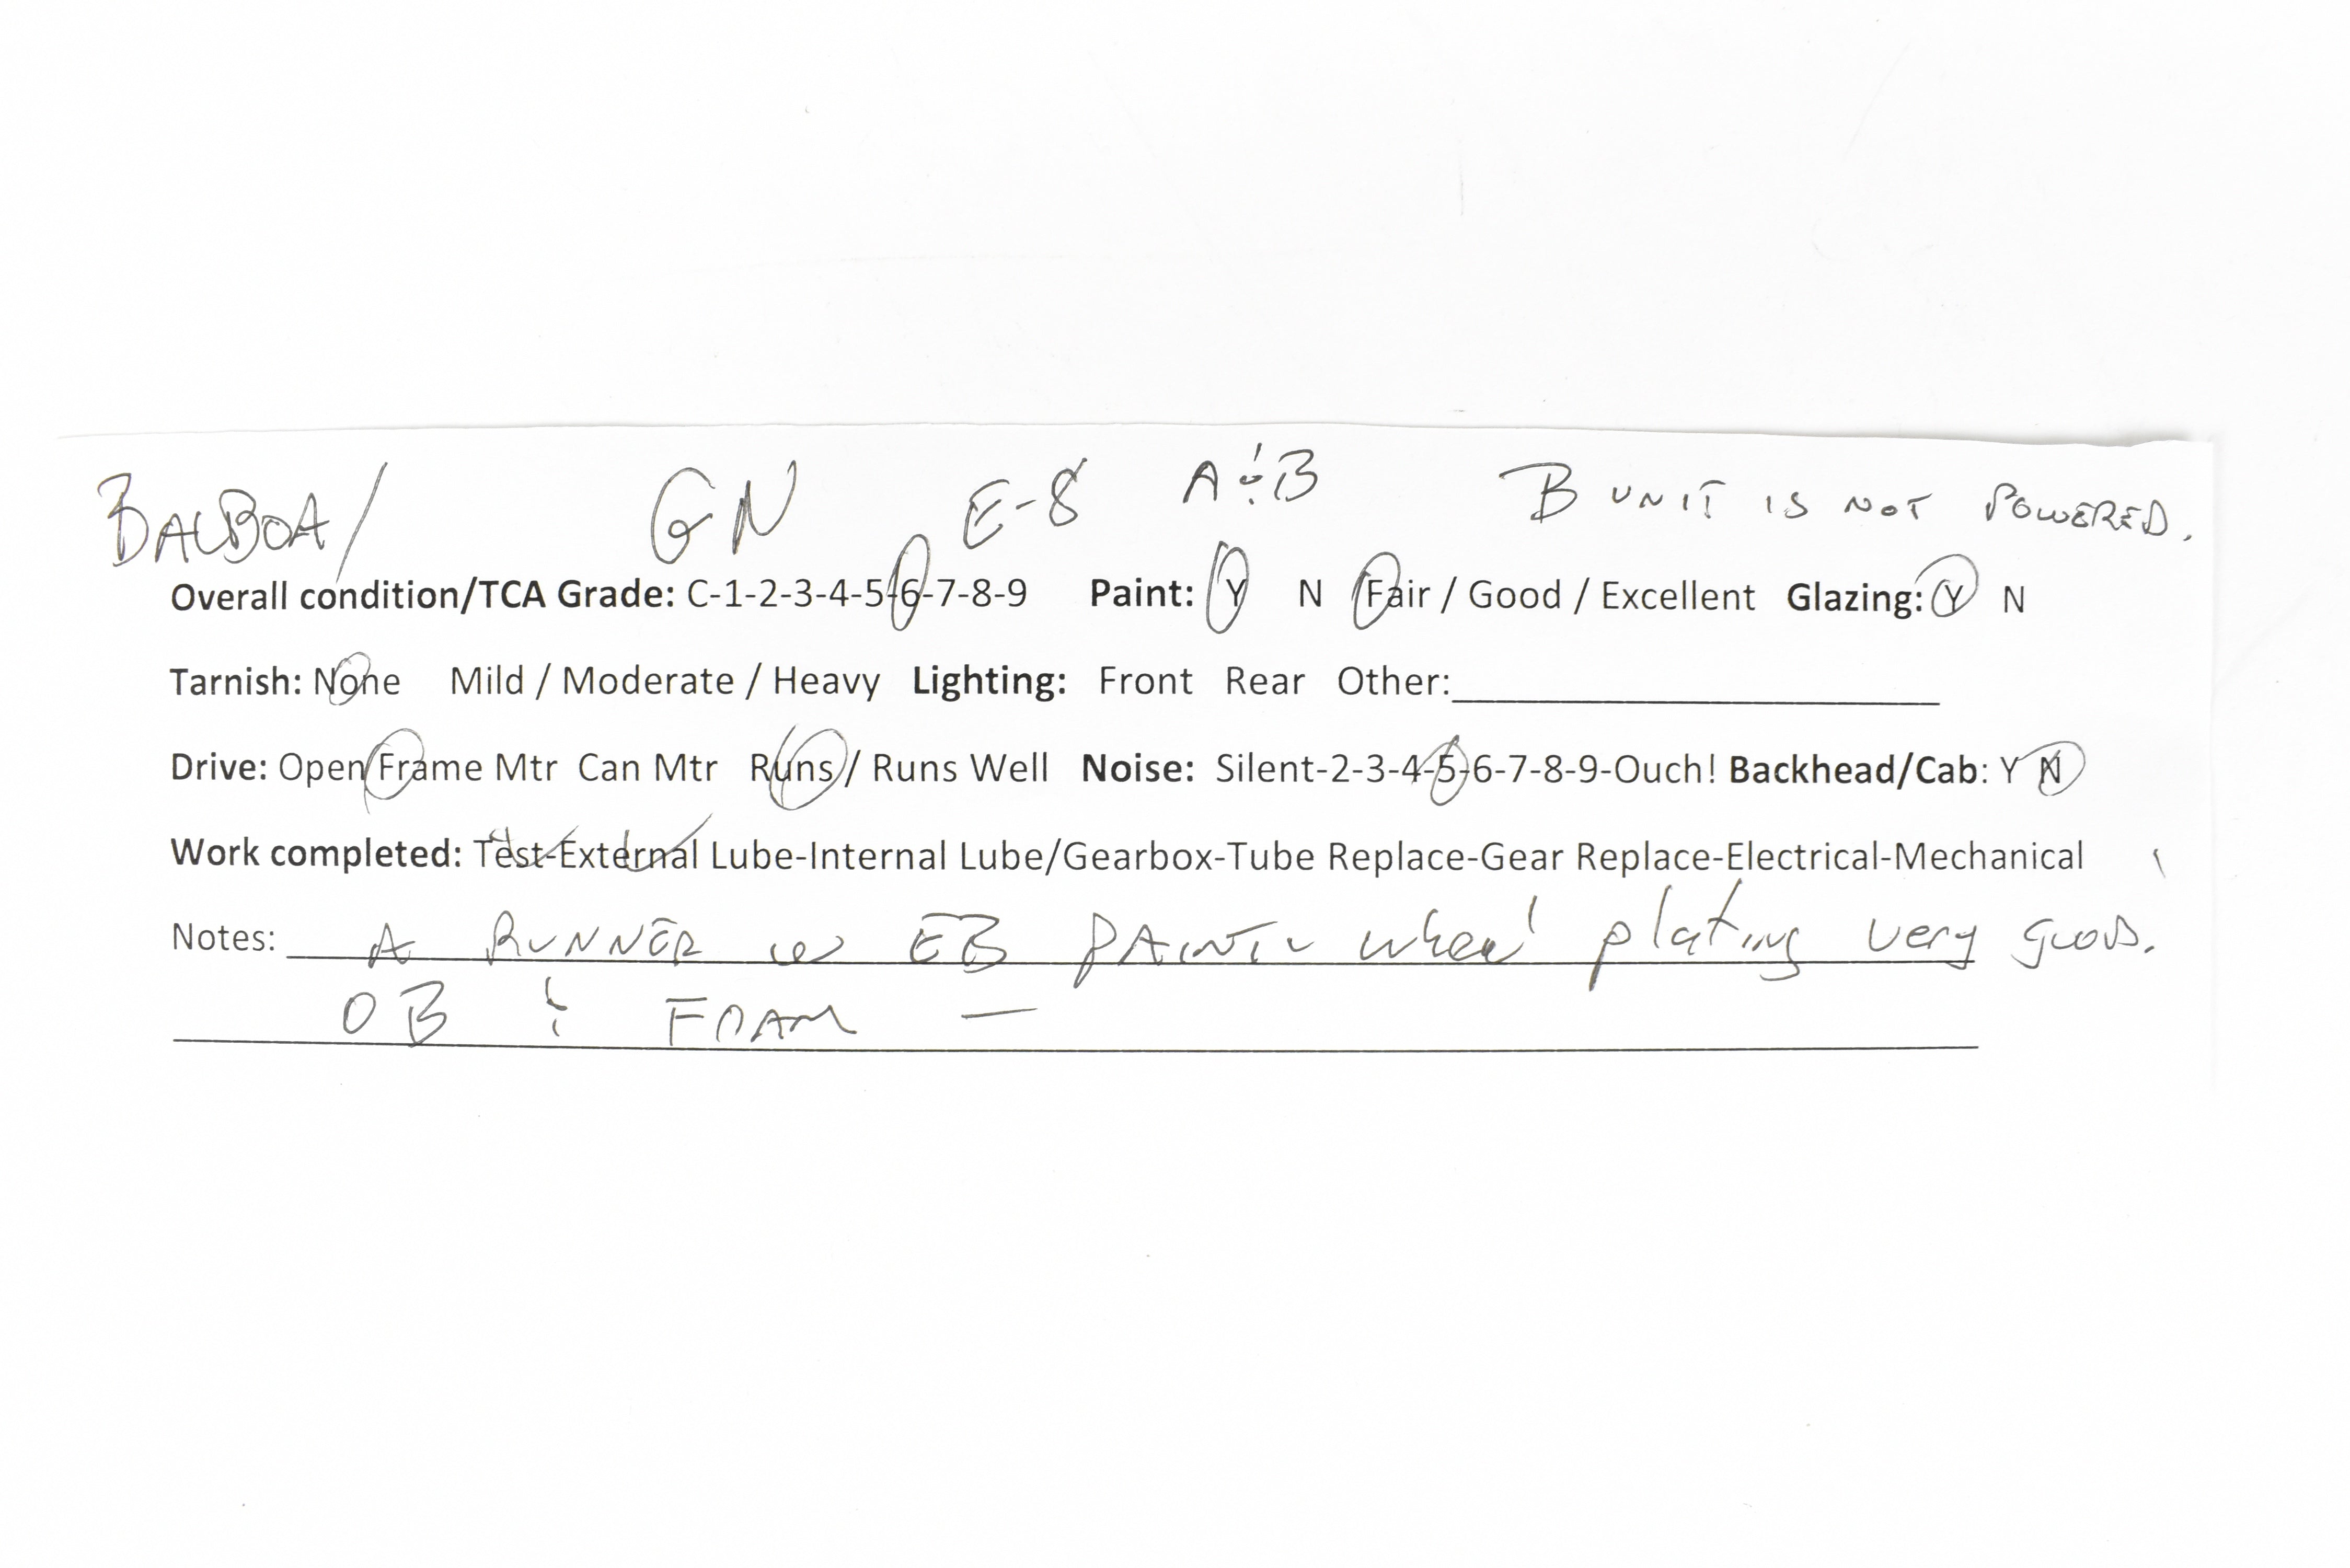 BALBOA/ GN E-8 A & B B UNIT IS NOT POWERED.
Overall condition/TCA Grade: C-1-2-3-4-5-6-7-8-9 Paint: Y N Fair / Good / Excellent Glazing: Y N
Tarnish: None Mild / Moderate / Heavy Lighting: Front Rear Other:
Drive: Open Frame Mtr Can Mtr Runs / Runs Well Noise: Silent-2-3-4-5-6-7-8-9-Ouch! Backhead/Cab: Y N
Work completed: Test-External Lube-Internal Lube/Gearbox-Tube Replace-Gear Replace-Electrical-Mechanical
Notes: A RUNNER w EB plating very good.
OB & FOAM —